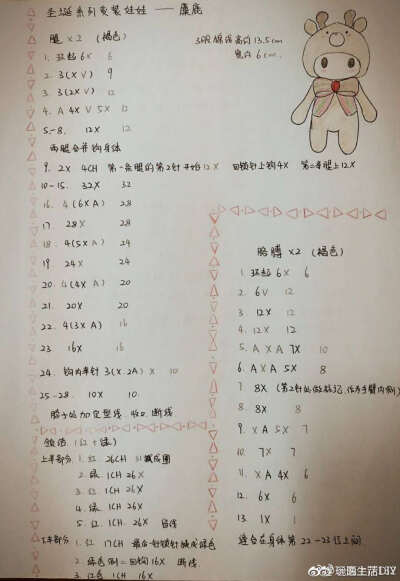 圣诞系列变装娃娃 —— 麋鹿
腿 x2 (褐色)
1. 环起 6X 6
2. 3(XV) 9
3. 3(2XV) 12
4. A 4X V 5X 12
5-8. 12X 12
两腿合并钩身体
9. 2X 4CH 第一条腿的第2针开始12X 回锁针上钩4X 第二条腿上12X
10-15. 32X 32
16. 4(6XA) 28
17. 28X 28
18. 4(5XA) 24
19. 24X 24
20. 4(4XA) 20
21. 20X 20
22. 4(3XA) 16
23. 16X 16
24. 钩内半针 3(X.2A) X 10
25-28. 10X 10
脖子处加定型线 断线
领结 (红+绿)
上半部分 1. 红 26CH
2. 绿 1CH 26X
3. 红 1CH 26X
4. 绿 1CH 26X
5. 红 1CH 26X
下半部分 1. 红 17CH 最后一针锁针换成绿色
2. 绿色 1CH 回钩16X 断线
3. 红色 1CH 16X
宽约 6cm
胳膊 x2 (褐色)
1. 环起 6X 6
2. 6V 12
3. 12X 12
4. 12X 12
5. A X A 7X 10
6. A X A 5X 8
7. 8X (第2针处做标记,作为手臂内侧)
8. 8X 8
9. X A 5X 7
10. 7X 7
11. X A 4X 6
12. 6X 6
13. 1X 1
缝合在身体第22-23行之间
琬恩生活DIY